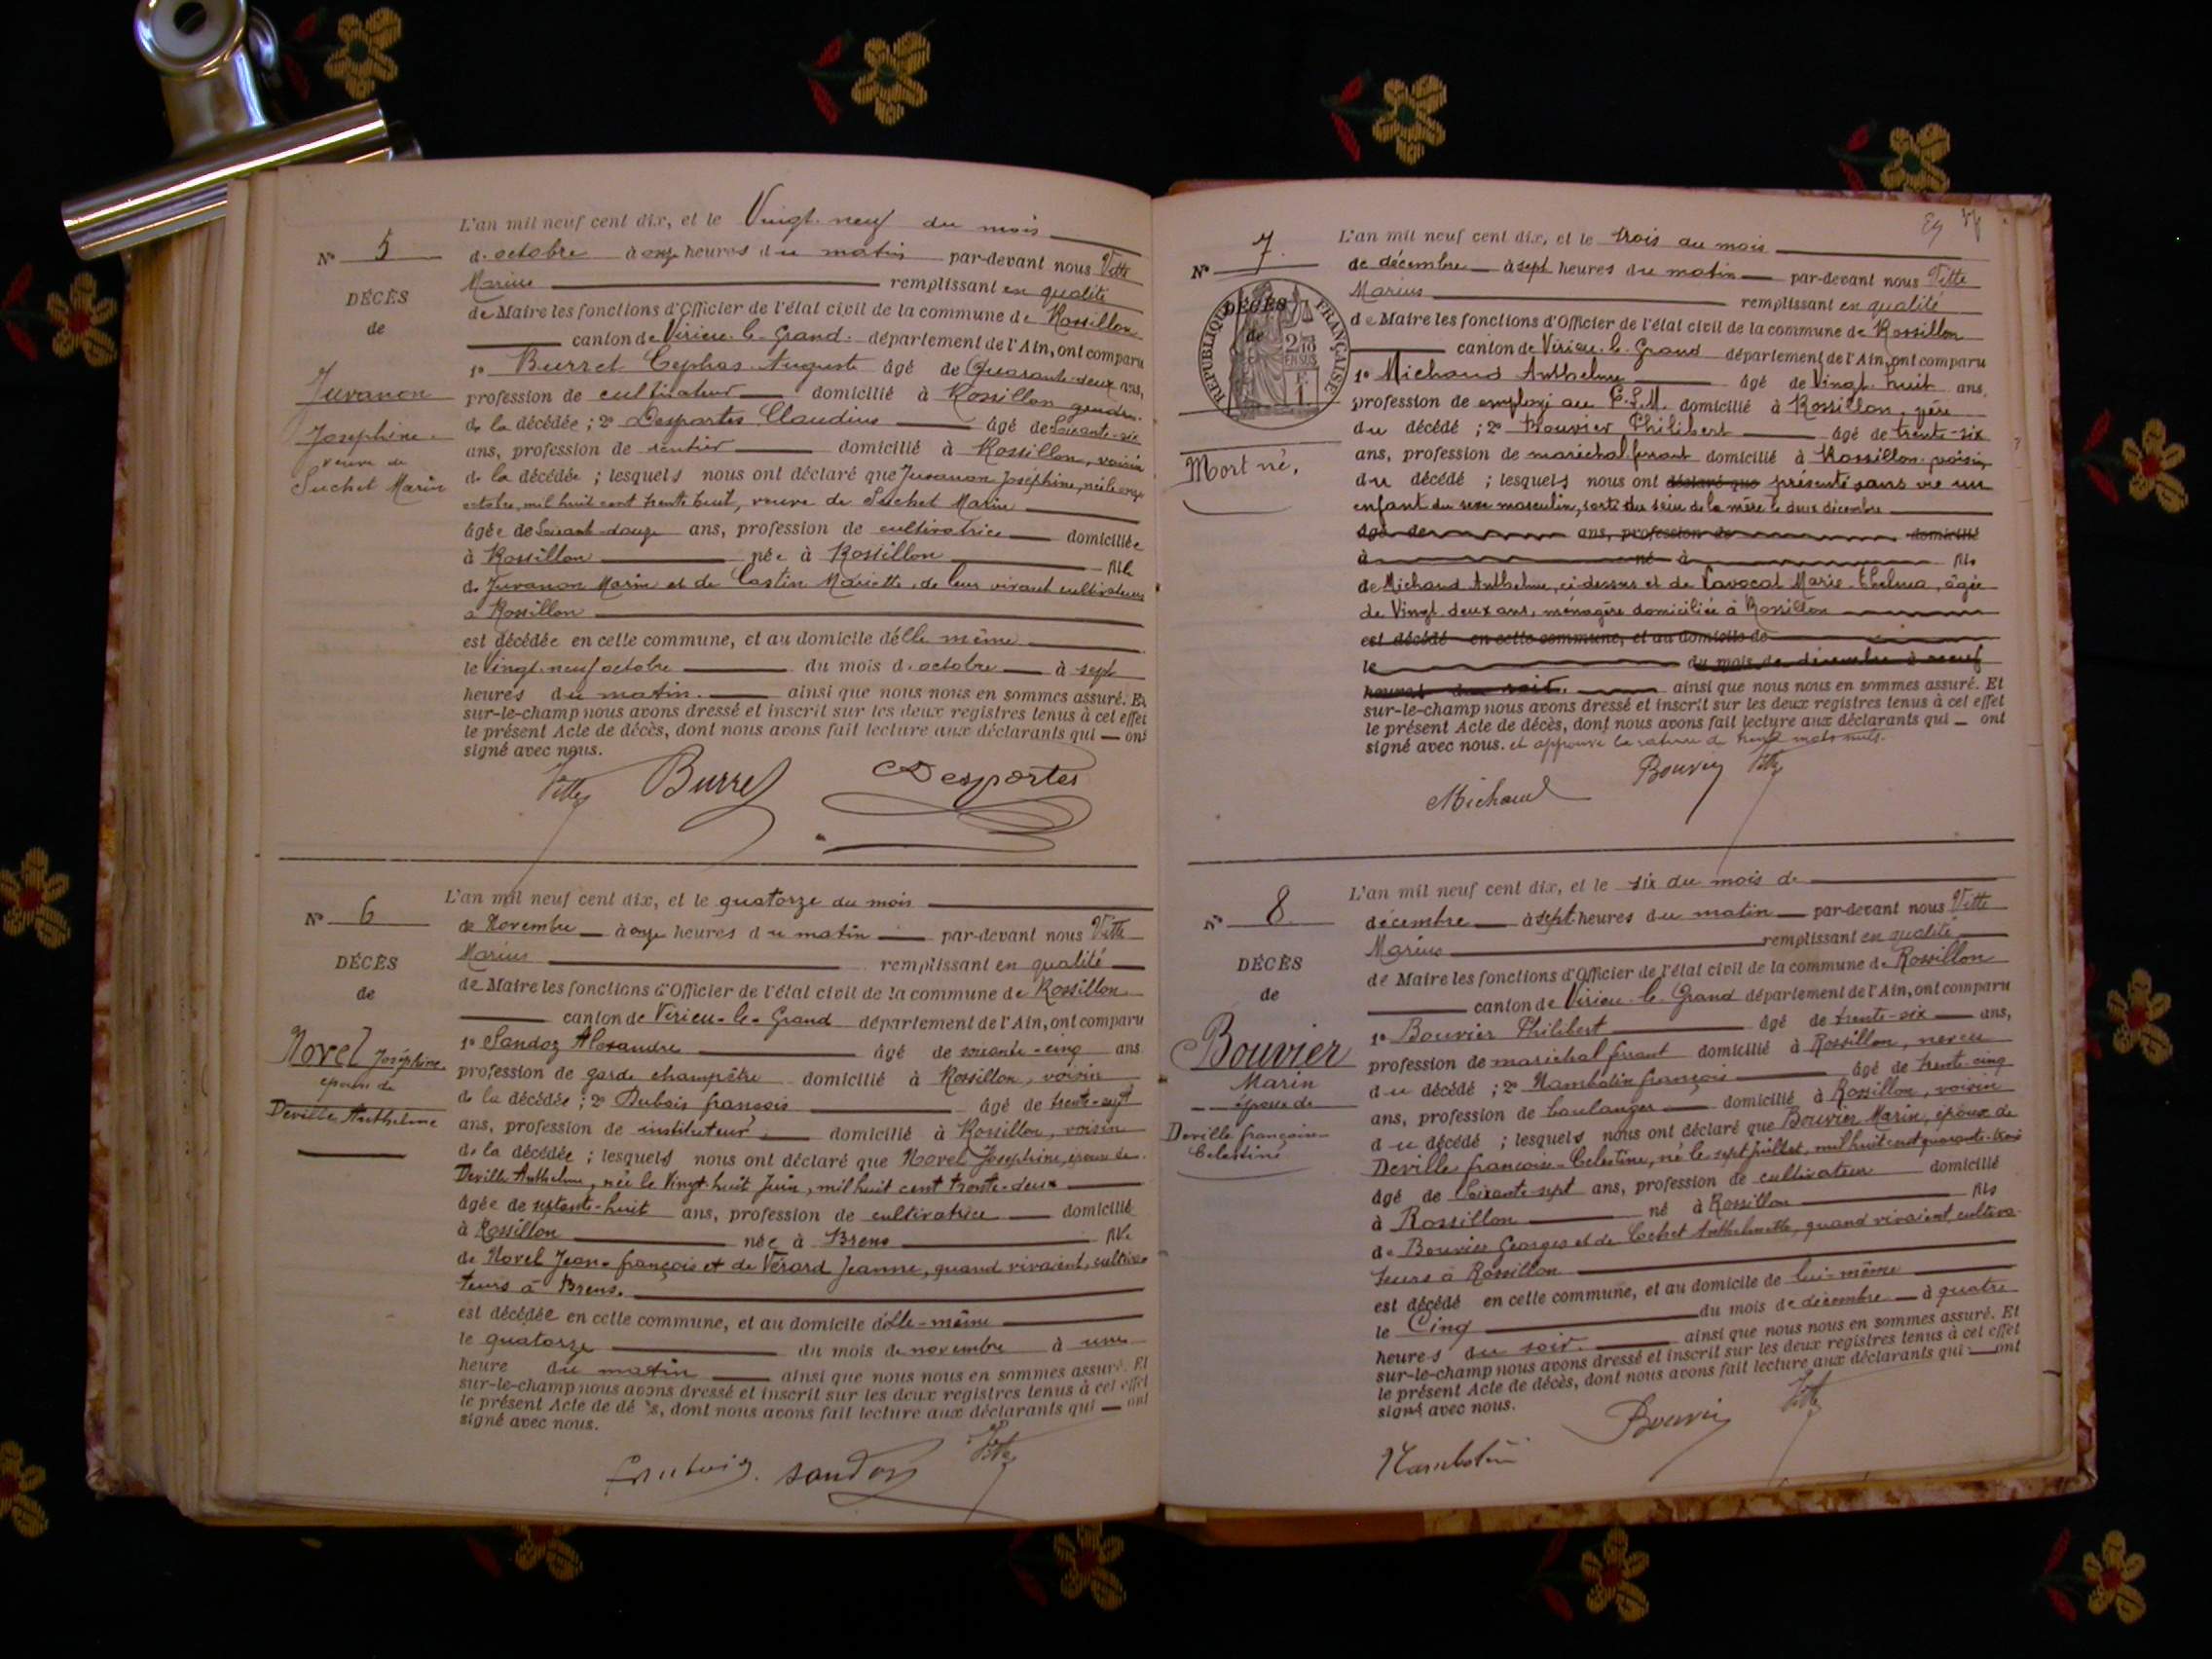 L'an mil neuf cent dix, et le Vingt-neuf du mois
N° 5
d'octobre à onze heures du matin par-devant nous Vitte
Marius remplissant en qualité
DÉCÈS
de Maire les fonctions d'Officier de l'état civil de la commune de Rossillon
de
canton de Virieu-le-Grand département de l'Ain, ont comparu
1° Burret Cephas Auguste âgé de Quarante-deux ans,
Juvanon
profession de cultivateur domicilié à Rossillon gendre
de la décédée ; 2° Desportes Claudius âgé de Soixante-six
Joséphine
ans, profession de rentier domicilié à Rossillon, voisin
veuve de
de la décédée ; lesquels nous ont déclaré que Juvanon Joséphine, née le onze
Suchet Marin
octobre, mil huit cent trente huit, veuve de Suchet Marin
âgée de Soixante-douze ans, profession de cultivatrice domiciliée
à Rossillon née à Rossillon fille
de Juvanon Marin et de Castin Mariette, de leur vivant cultivateurs
à Rossillon
est décédée en cette commune, et au domicile d'elle même
le Vingt-neuf octobre du mois d'octobre à sept
heures du matin. ainsi que nous nous en sommes assuré. Et
sur-le-champ nous avons dressé et inscrit sur les deux registres tenus à cet effet
le présent Acte de décès, dont nous avons fait lecture aux déclarants qui ont
signé avec nous.
Vitte Burret Desportes
L'an mil neuf cent dix, et le quatorze du mois
N° 6
de Novembre à onze heures du matin par-devant nous Vitte
Marius remplissant en qualité
DÉCÈS
de Maire les fonctions d'Officier de l'état civil de la commune de Rossillon
de
canton de Virieu-le-Grand département de l'Ain, ont comparu
1° Sandoz Alexandre âgé de soixante-cinq ans
Novel Joséphine
profession de garde champêtre domicilié à Rossillon, voisin
épouse de
de la décédée ; 2° Dubois françois âgé de trente-sept
Deville Anthelme
ans, profession de instituteur domicilié à Rossillon, voisin
de la décédée ; lesquels nous ont déclaré que Novel Josephine, épouse de
Deville Anthelme, née le Vingt-huit Juin, mil huit cent trente-deux
âgée de septante-huit ans, profession de cultivatrice domicilié
à Rossillon née à Brens fille
de Novel Jean-françois et de Vérard Jeanne, quand vivaient, cultiva-
teurs à Brens.
est décédée en cette commune, et au domicile d'elle-même
le quatorze du mois de novembre à une
heure du matin ainsi que nous nous en sommes assuré. Et
sur-le-champ nous avons dressé et inscrit sur les deux registres tenus à cet effet
le présent Acte de décès, dont nous avons fait lecture aux déclarants qui ont
signé avec nous.
Sandoz Vitte
L'an mil neuf cent dix, et le trois du mois
N° 7
de décembre à sept heures du matin par-devant nous Vitte
Marius remplissant en qualité
DÉCÈS
de Maire les fonctions d'Officier de l'état civil de la commune de Rossillon
de
RÉPUBLIQUE FRANÇAISE
EN SUS
canton de Virieu-le-Grand département de l'Ain, ont comparu
1° Michaud Anthelme âgé de Vingt-huit ans
profession de employé au P.L.M. domicilié à Rossillon, père
du décédé ; 2° Bouvier Philibert âgé de trente-six
ans, profession de maréchal ferrant domicilié à Rossillon voisin
Mort né,
du décédé ; lesquels nous ont déclaré que présenté sans vie un
enfant du sexe masculin, sorti du sein de la mère le deux décembre
âgé de ans, profession de domicilié
à né à fils
de Michaud Anthelme, ci-dessus et de Lavocat Marie-Thelma, âgée
de Vingt-deux ans, ménagère domiciliée à Rossillon
est décédé en cette commune, et au domicile de
le du mois de décembre à neuf
heures du soir. ainsi que nous nous en sommes assuré. Et
sur-le-champ nous avons dressé et inscrit sur les deux registres tenus à cet effet
le présent Acte de décès, dont nous avons fait lecture aux déclarants qui ont
signé avec nous. et approuvé la rature de mots nuls.
Michaud Bouvier Vitte
L'an mil neuf cent dix, et le six du mois de
N° 8
décembre à sept heures du matin par-devant nous Vitte
Marius remplissant en qualité
DÉCÈS
de Maire les fonctions d'Officier de l'état civil de la commune de Rossillon
de
canton de Virieu-le-Grand département de l'Ain, ont comparu
1° Bouvier Philibert âgé de trente-six ans,
Bouvier
profession de maréchal ferrant domicilié à Rossillon, neveu
Marin
du décédé ; 2° Nambotin françois âgé de trente-cinq
époux de
ans, profession de boulanger domicilié à Rossillon, voisin
Deville françoise-
du décédé ; lesquels nous ont déclaré que Bouvier Marin, époux de
Celestine
Deville francoise-Celestine, né le sept juillet, mil huit cent quarante-trois
âgé de Soixante-sept ans, profession de cultivateur domicilié
à Rossillon né à Rossillon fils
de Bouvier Georges et de Cochet Anthelmette, quand vivaient cultiva-
teurs à Rossillon
est décédé en cette commune, et au domicile de lui-même
le Cinq du mois de décembre à quatre
heures du soir. ainsi que nous nous en sommes assuré. Et
sur-le-champ nous avons dressé et inscrit sur les deux registres tenus à cet effet
le présent Acte de décès, dont nous avons fait lecture aux déclarants qui ont
signé avec nous.
Nambotin Bouvier Vitte